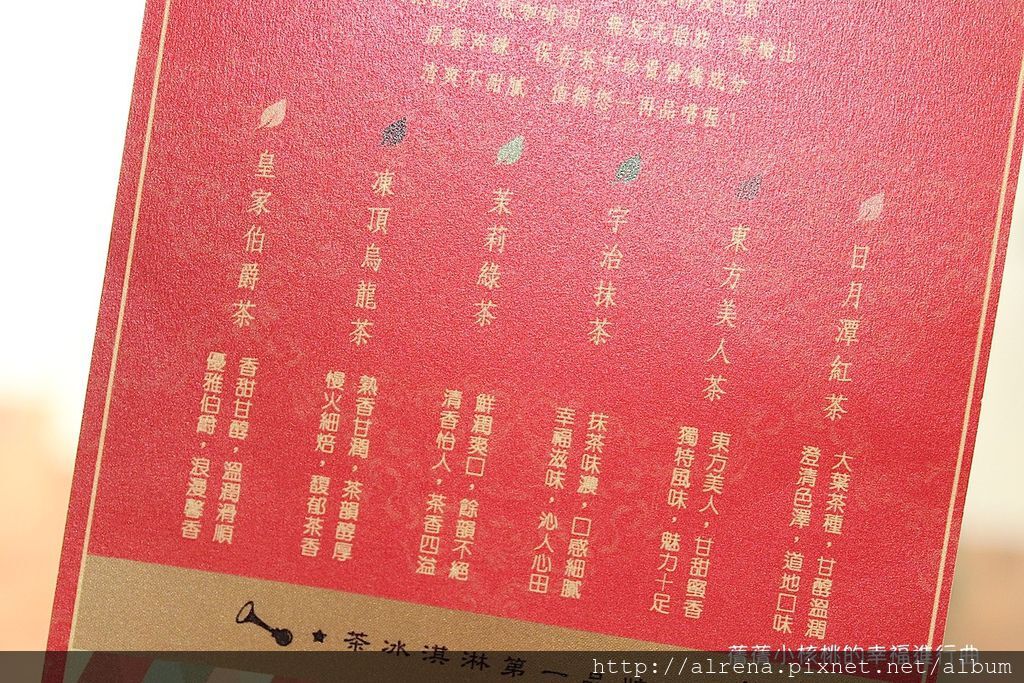 原葉淬鍊,保有茶中珍貴營養成分
清爽不甜膩,值得您一再品嚐喔!
日月潭紅茶
大葉茶種,甘醇溫潤
澄清色澤,道地口味
東方美人茶
東方美人,甘甜蜜香
獨特風味,魅力十足
宇治抹茶
抹茶味濃,口感細膩
幸福滋味,沁人心田
茉莉綠茶
鮮潤爽口,餘韻不絕
清香怡人,茶香四溢
凍頂烏龍茶
熟香甘潤,茶韻醇厚
慢火細焙,馥郁茶香
皇家伯爵茶
香甜甘醇,溫潤滑順
優雅伯爵,浪漫馨香
茶冰淇淋第一品牌
舊舊小核桃的幸福進行曲
http://alrena.pixnet.net/album